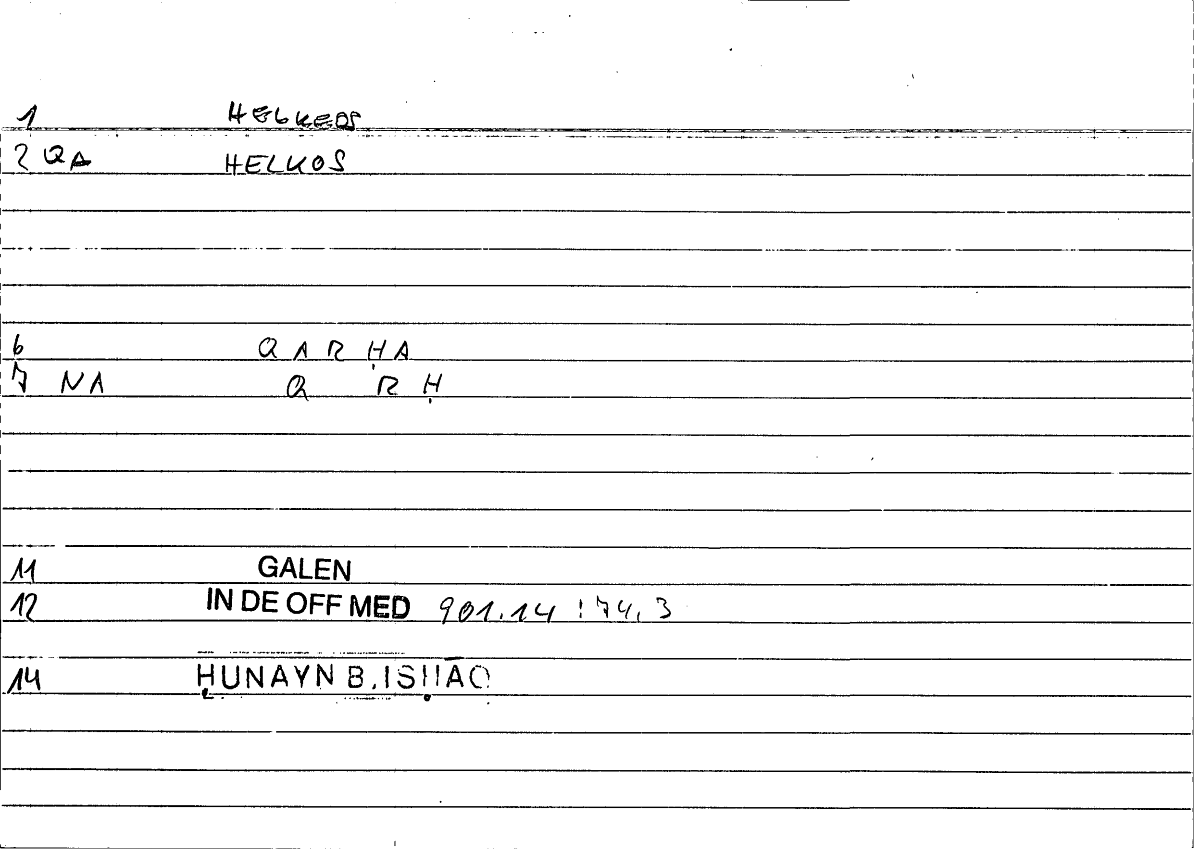 1 HELKEOS
2 QA HELKOS
6 QARḤA
7 NA Q RḤ
11 GALEN
12 IN DE OFF MED 901.14 : 74,3
14 ḤUNAYN B. ISḤĀQ